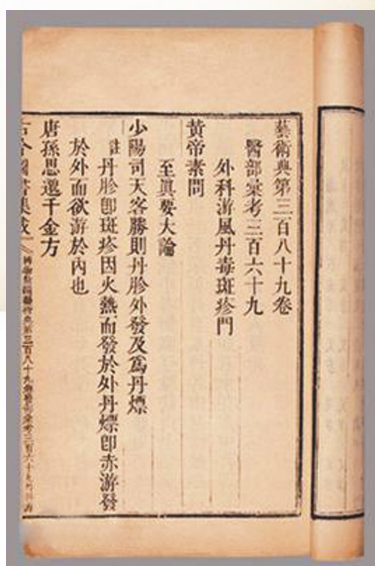 藝術典第三百八十九卷
醫部彙考三百六十九
外科游風丹毒斑疹門
黃帝素問
至眞要大論
少陽司天客勝則丹胗外發及爲丹熛
註丹胗卽斑疹因火熱而發於外丹熛卽赤游發
於外而欲游於內也
唐孫思邈千金方
古今圖書集成
博物彙編藝術典第三百八十九卷醫部彙考三百六十九